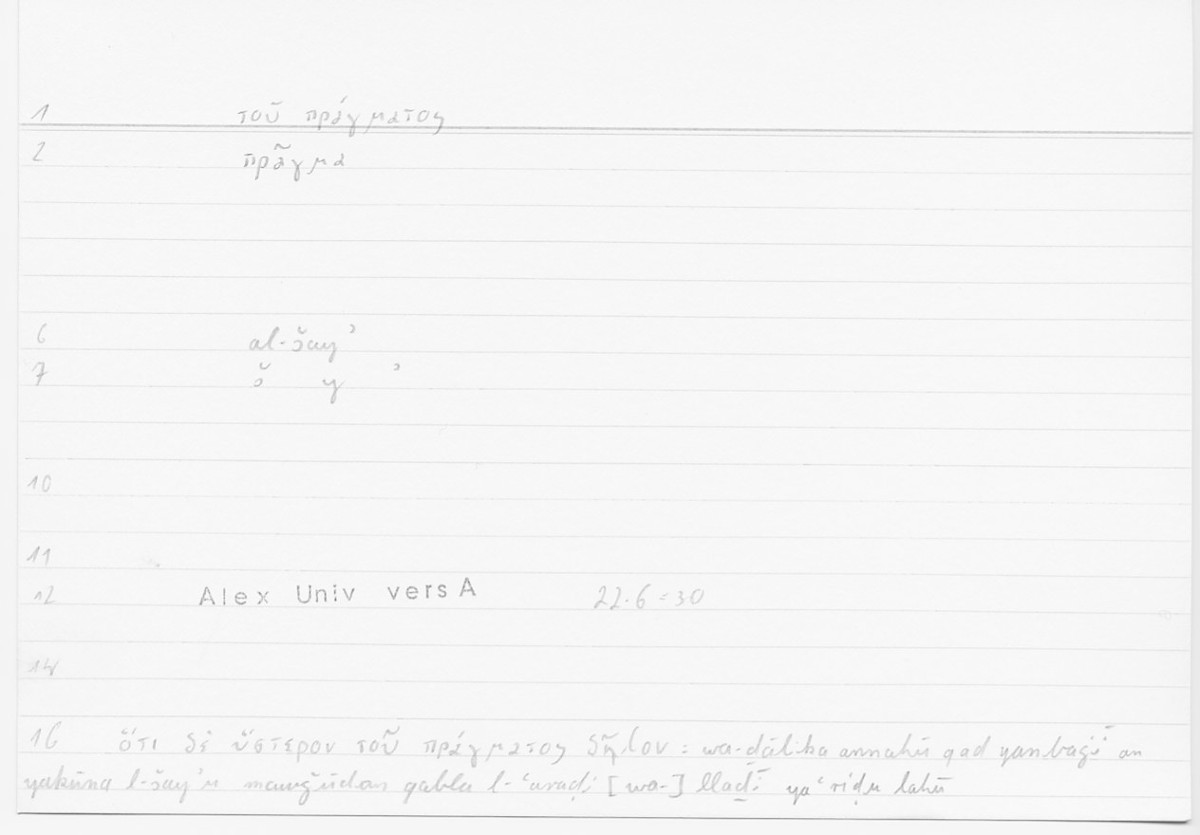 1 τοῦ πράγματος
2 πρᾶγμα
6 al-šayʾ
7 š y ʾ
10
11
12 Alex Univ vers A 22.6 = 30
14
16 ὅτι δὲ ὕστερον τοῦ πράγματος δῆλον : wa-ḏālika annahū qad yanbaġī an
yakūna l-šayʾu mawǧūdan qabla l-ʿaraḍi [wa-] llaḏī yaʿriḍu lahū